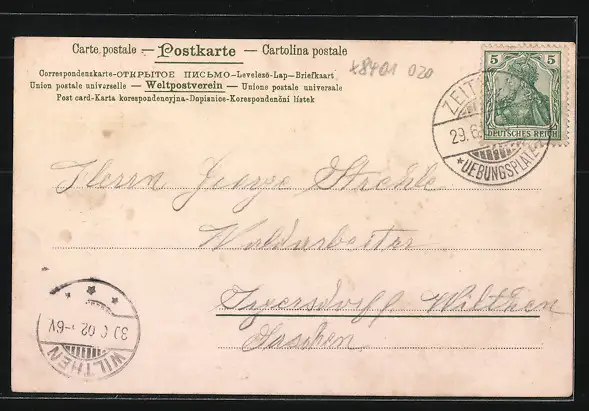 Carte postale — Postkarte — Cartolina postale
Correspondenzkarte-ОТКРЫТОЕ ПИСЬМО-Levelező-Lap-Briefkaart
Union postale universelle — Weltpostverein — Unione postale universale
Post card-Karta korespondencyjna-Dopisnice-Korespondenční lístek
5 5
DEUTSCHES REICH
29.6
*UEBUNGSPLATZ
Herrn
Waldarbeiter
Wilthen
Sachsen
WILTHEN
02